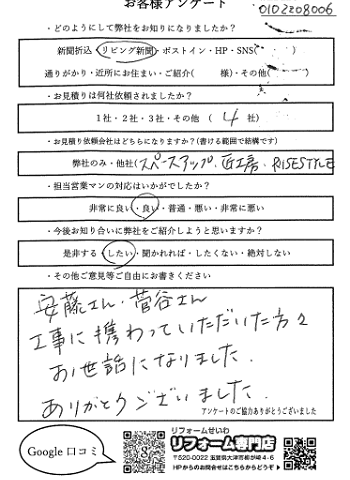 お客様アンケート
0102208006
・どのようにして弊社をお知りになりましたか？
新聞折込・リビング新聞・ポストイン・HP・SNS(　　　)
通りがかり・近所にお住まい・ご紹介(　　様)・その他(　　　)
・お見積りは何社依頼されましたか？
1社・2社・3社・その他（　4　社）
・お見積り依頼会社はどちらになりますか？(書ける範囲で結構です)
弊社のみ・他社(スペースアップ、匠工房、RISESTYLE
・担当営業マンの対応はいかがでしたか？
非常に良い・良い・普通・悪い・非常に悪い
・今後お知り合いに弊社をご紹介しようと思いますか？
是非する・したい・聞かれれば・したくない・絶対しない
・その他ご意見等ご自由にお書きください
安藤さん・菅谷さん
工事に携わっていただいた方々
お世話になりました.
ありがとうございました.
アンケートのご協力ありがとうございました
Google口コミ
リフォームせいわ
リフォーム専門店
〒520-0022 滋賀県大津市柳が崎4-6
HPからのお問合せはこちらからどうぞ